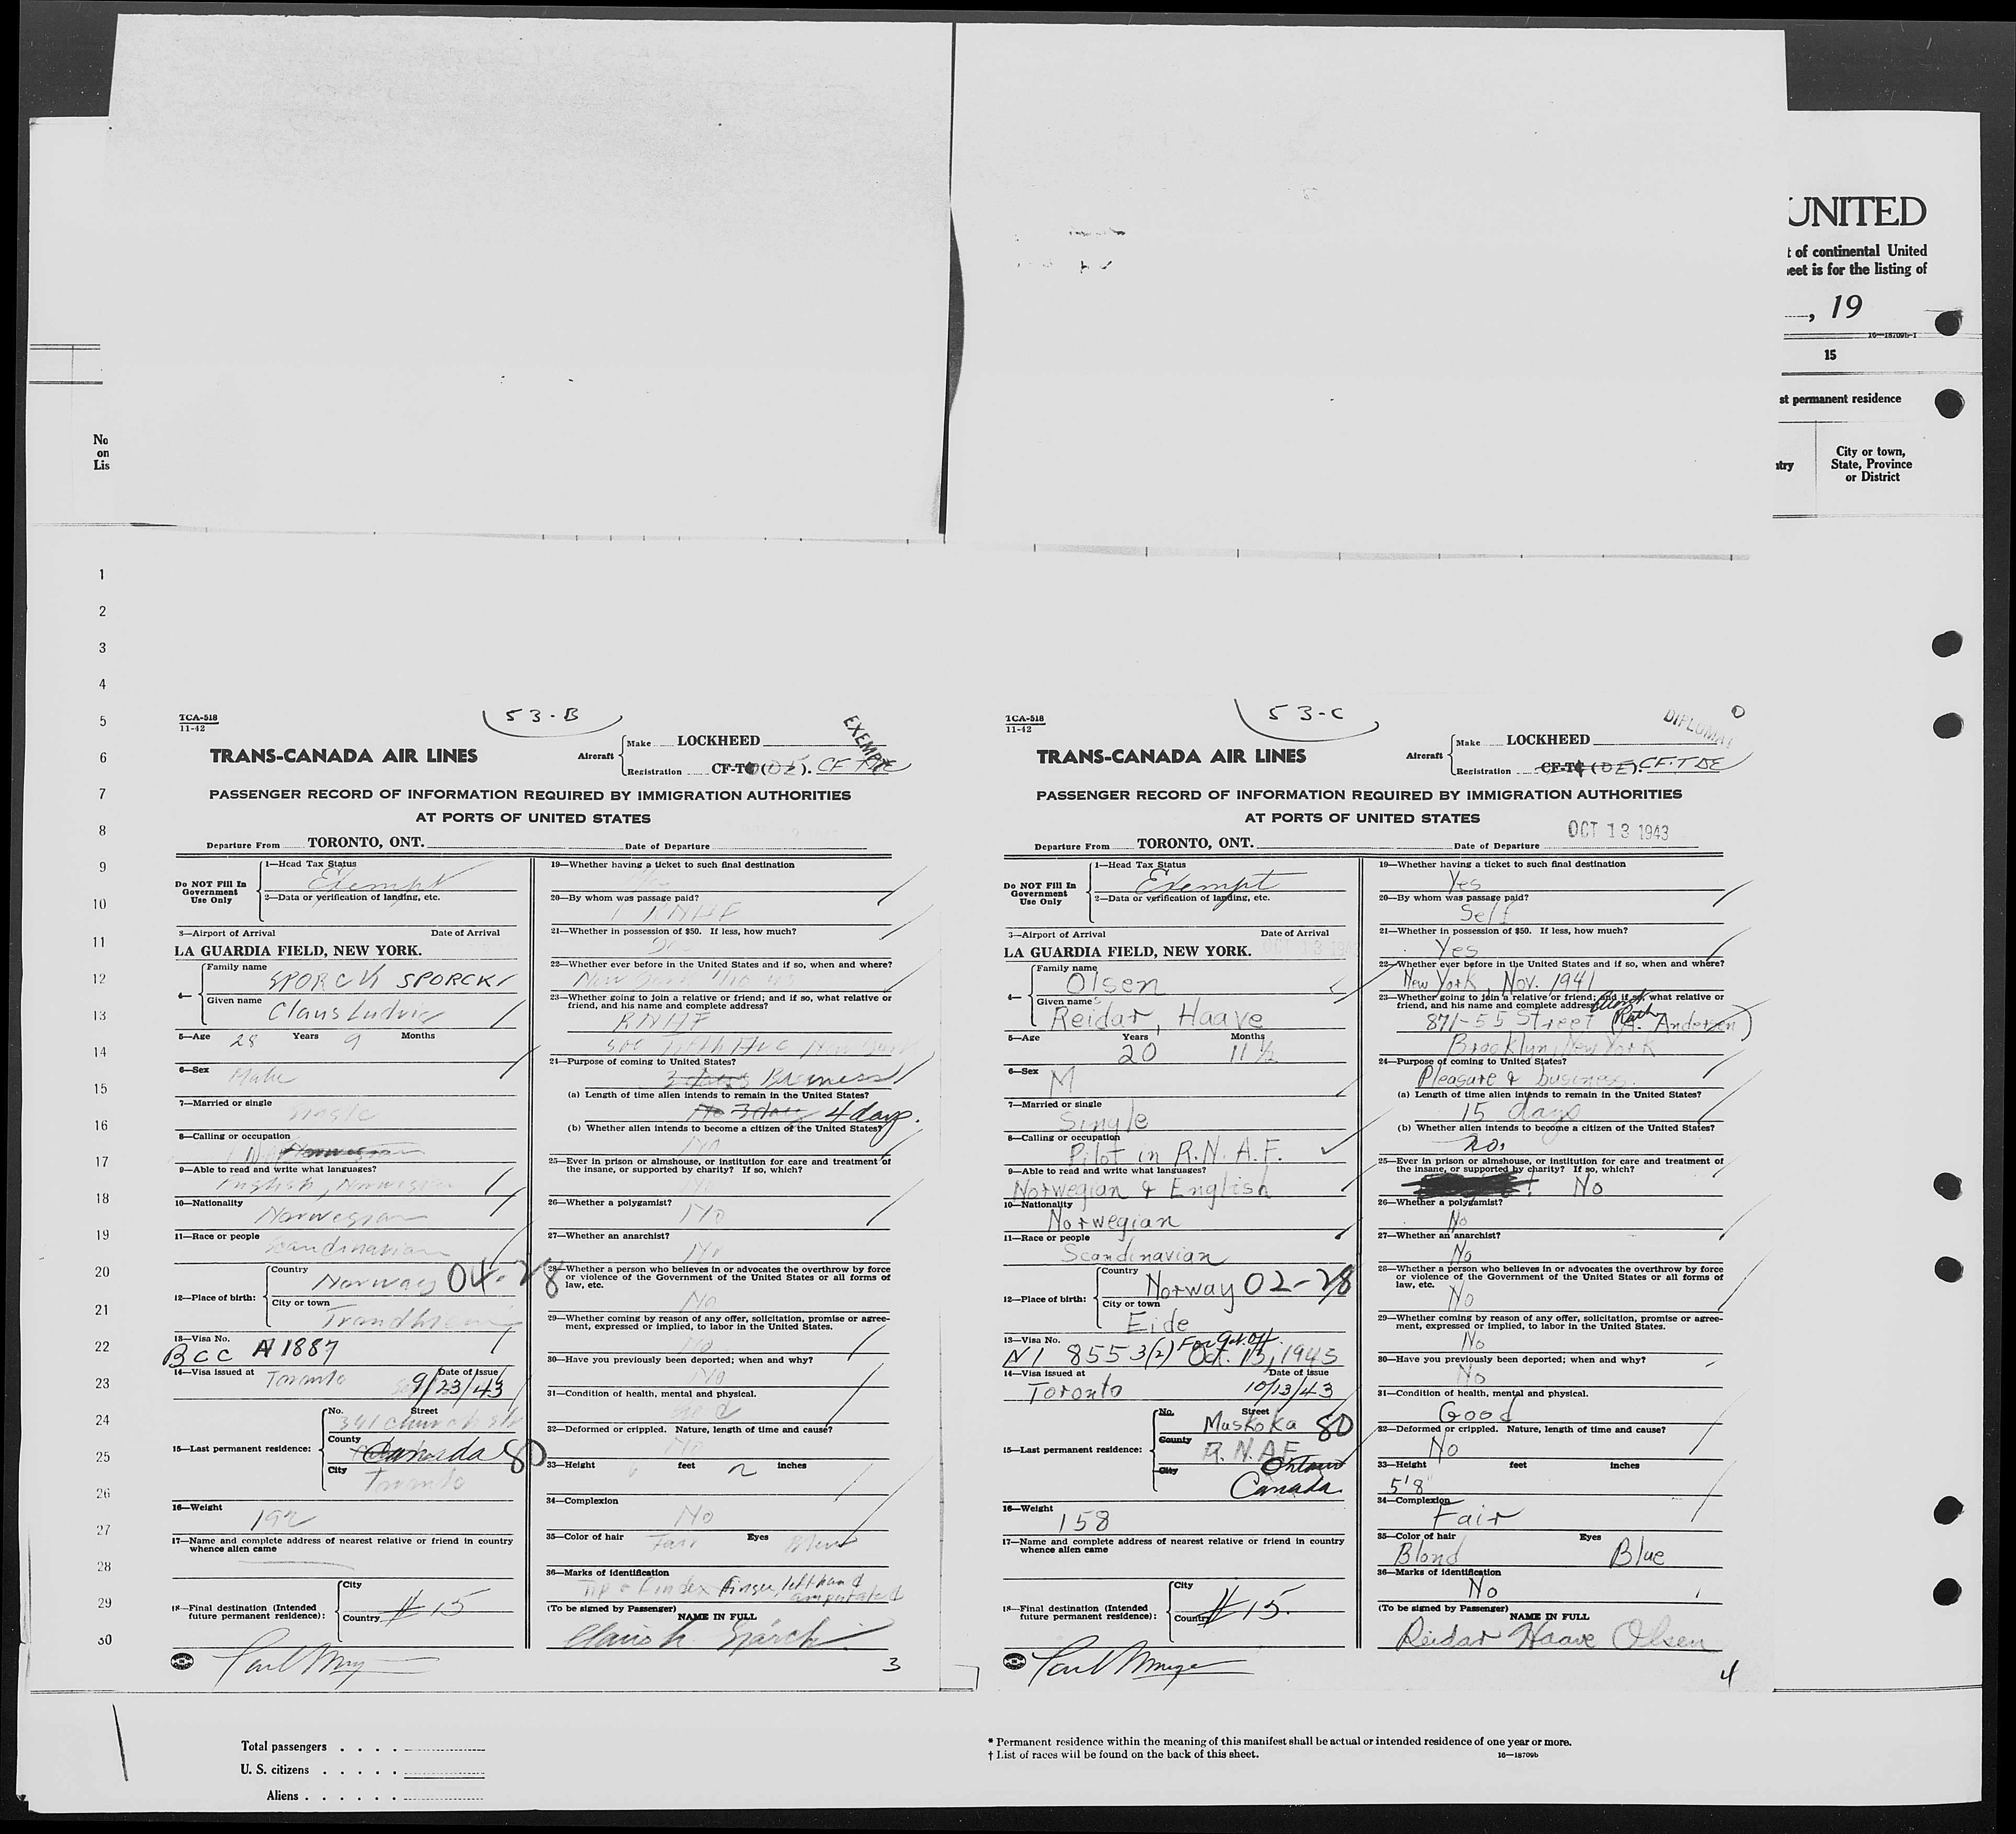 UNITED
t of continental United
eet is for the listing of
, 19
16—18709b-1
15
st permanent residence
No
on
Lis
try
City or town,
State, Province
or District
1
2
3
4
5
6
7
8
9
10
11
12
13
14
15
16
17
18
19
20
21
22
23
24
25
26
27
28
29
30
53-B
TCA-518
11-42
EXEMPT
TRANS-CANADA AIR LINES
Aircraft
Make LOCKHEED
Registration CF-TC (DE). CF TDE
PASSENGER RECORD OF INFORMATION REQUIRED BY IMMIGRATION AUTHORITIES
AT PORTS OF UNITED STATES
Departure From TORONTO, ONT. Date of Departure
Do NOT Fill In
Government
Use Only
1—Head Tax Status
Exempt
2—Data or verification of landing, etc.
3—Airport of Arrival Date of Arrival
LA GUARDIA FIELD, NEW YORK.
4—
Family name
SPORCK SPORCK
Given name
Claus Ludvig
5—Age 28 Years 9 Months
6—Sex
Male
7—Married or single
Single
8—Calling or occupation
9—Able to read and write what languages?
English, Norwegian
10—Nationality
Norwegian
11—Race or people
Scandinavian
12—Place of birth:
Country
Norway 04-28
City or town
Trondhiem
13—Visa No.
BCC A1887
14—Visa issued at Toronto Date of Issue
9/23/43
15—Last permanent residence:
No. Street
341 Church str
County
Canada 80
City
Toronto
16—Weight
192
17—Name and complete address of nearest relative or friend in country
whence alien came
18—Final destination (Intended
future permanent residence):
City
Country # 15
19—Whether having a ticket to such final destination
20—By whom was passage paid?
RNAF
21—Whether in possession of $50. If less, how much?
22—Whether ever before in the United States and if so, when and where?
23—Whether going to join a relative or friend; and if so, what relative or
friend, and his name and complete address?
RNAF
500 Fifth Ave New York
24—Purpose of coming to United States?
3 days Business
(a) Length of time alien intends to remain in the United States?
No 3 days 4 days.
(b) Whether alien intends to become a citizen of the United States?
No
25—Ever in prison or almshouse, or institution for care and treatment of
the insane, or supported by charity? If so, which?
No
26—Whether a polygamist?
No
27—Whether an anarchist?
No
28—Whether a person who believes in or advocates the overthrow by force
or violence of the Government of the United States or all forms of
law, etc.
No
29—Whether coming by reason of any offer, solicitation, promise or agree-
ment, expressed or implied, to labor in the United States.
No
30—Have you previously been deported; when and why?
No
31—Condition of health, mental and physical.
Good
32—Deformed or crippled. Nature, length of time and cause?
No
33—Height 6 feet 2 inches
34—Complexion
No
35—Color of hair Fair Eyes Blue
36—Marks of identification
Tip of index finger, left hand
amputated
(To be signed by Passenger)
NAME IN FULL
Claus L. Sporck
3
53-C
TCA-518
11-42
DIPLOMAT
TRANS-CANADA AIR LINES
Aircraft
Make LOCKHEED
Registration CF-TC (DE). CF-TDE
PASSENGER RECORD OF INFORMATION REQUIRED BY IMMIGRATION AUTHORITIES
AT PORTS OF UNITED STATES
Departure From TORONTO, ONT. Date of Departure OCT 13 1943
Do NOT Fill In
Government
Use Only
1—Head Tax Status
Exempt
2—Data or verification of landing, etc.
3—Airport of Arrival Date of Arrival
LA GUARDIA FIELD, NEW YORK. OCT 13 1943
4—
Family name
Olsen
Given names
Reidar, Haave
5—Age Years Months
20 11 ½
6—Sex
M
7—Married or single
Single
8—Calling or occupation
Pilot in R.N.A.F.
9—Able to read and write what languages?
Norwegian & English
10—Nationality
Norwegian
11—Race or people
Scandinavian
12—Place of birth:
Country
Norway 02-28
City or town
Eide
13—Visa No. For Gov. Off.
NI 855 3(2) Oct. 13, 1943
14—Visa issued at Date of issue
Toronto 10/13/43
15—Last permanent residence:
No. Street
Muskoka 80
County
R.N.A.F.
City Ontario
Canada
16—Weight
158
17—Name and complete address of nearest relative or friend in country
whence alien came
18—Final destination (Intended
future permanent residence):
City
Country # 15.
19—Whether having a ticket to such final destination
Yes
20—By whom was passage paid?
Self
21—Whether in possession of $50. If less, how much?
Yes
22—Whether ever before in the United States and if so, when and where?
New York, Nov. 1941
23—Whether going to join a relative or friend; and if so, what relative or
friend, and his name and complete address?
871-55 Street Ruth (A. Andersen)
Brooklyn, New York
24—Purpose of coming to United States?
Pleasure & business.
(a) Length of time alien intends to remain in the United States?
15 days
(b) Whether alien intends to become a citizen of the United States?
no.
25—Ever in prison or almshouse, or institution for care and treatment of
the insane, or supported by charity? If so, which?
No
26—Whether a polygamist?
No
27—Whether an anarchist?
No
28—Whether a person who believes in or advocates the overthrow by force
or violence of the Government of the United States or all forms of
law, etc.
No
29—Whether coming by reason of any offer, solicitation, promise or agree-
ment, expressed or implied, to labor in the United States.
No
30—Have you previously been deported; when and why?
No
31—Condition of health, mental and physical.
Good
32—Deformed or crippled. Nature, length of time and cause?
No
33—Height feet inches
5'8"
34—Complexion
Fair
35—Color of hair Eyes
Blond Blue
36—Marks of identification
No
(To be signed by Passenger)
NAME IN FULL
Reidar Haave Olsen
4
Total passengers
U. S. citizens
Aliens
* Permanent residence within the meaning of this manifest shall be actual or intended residence of one year or more.
† List of races will be found on the back of this sheet. 16—18709b